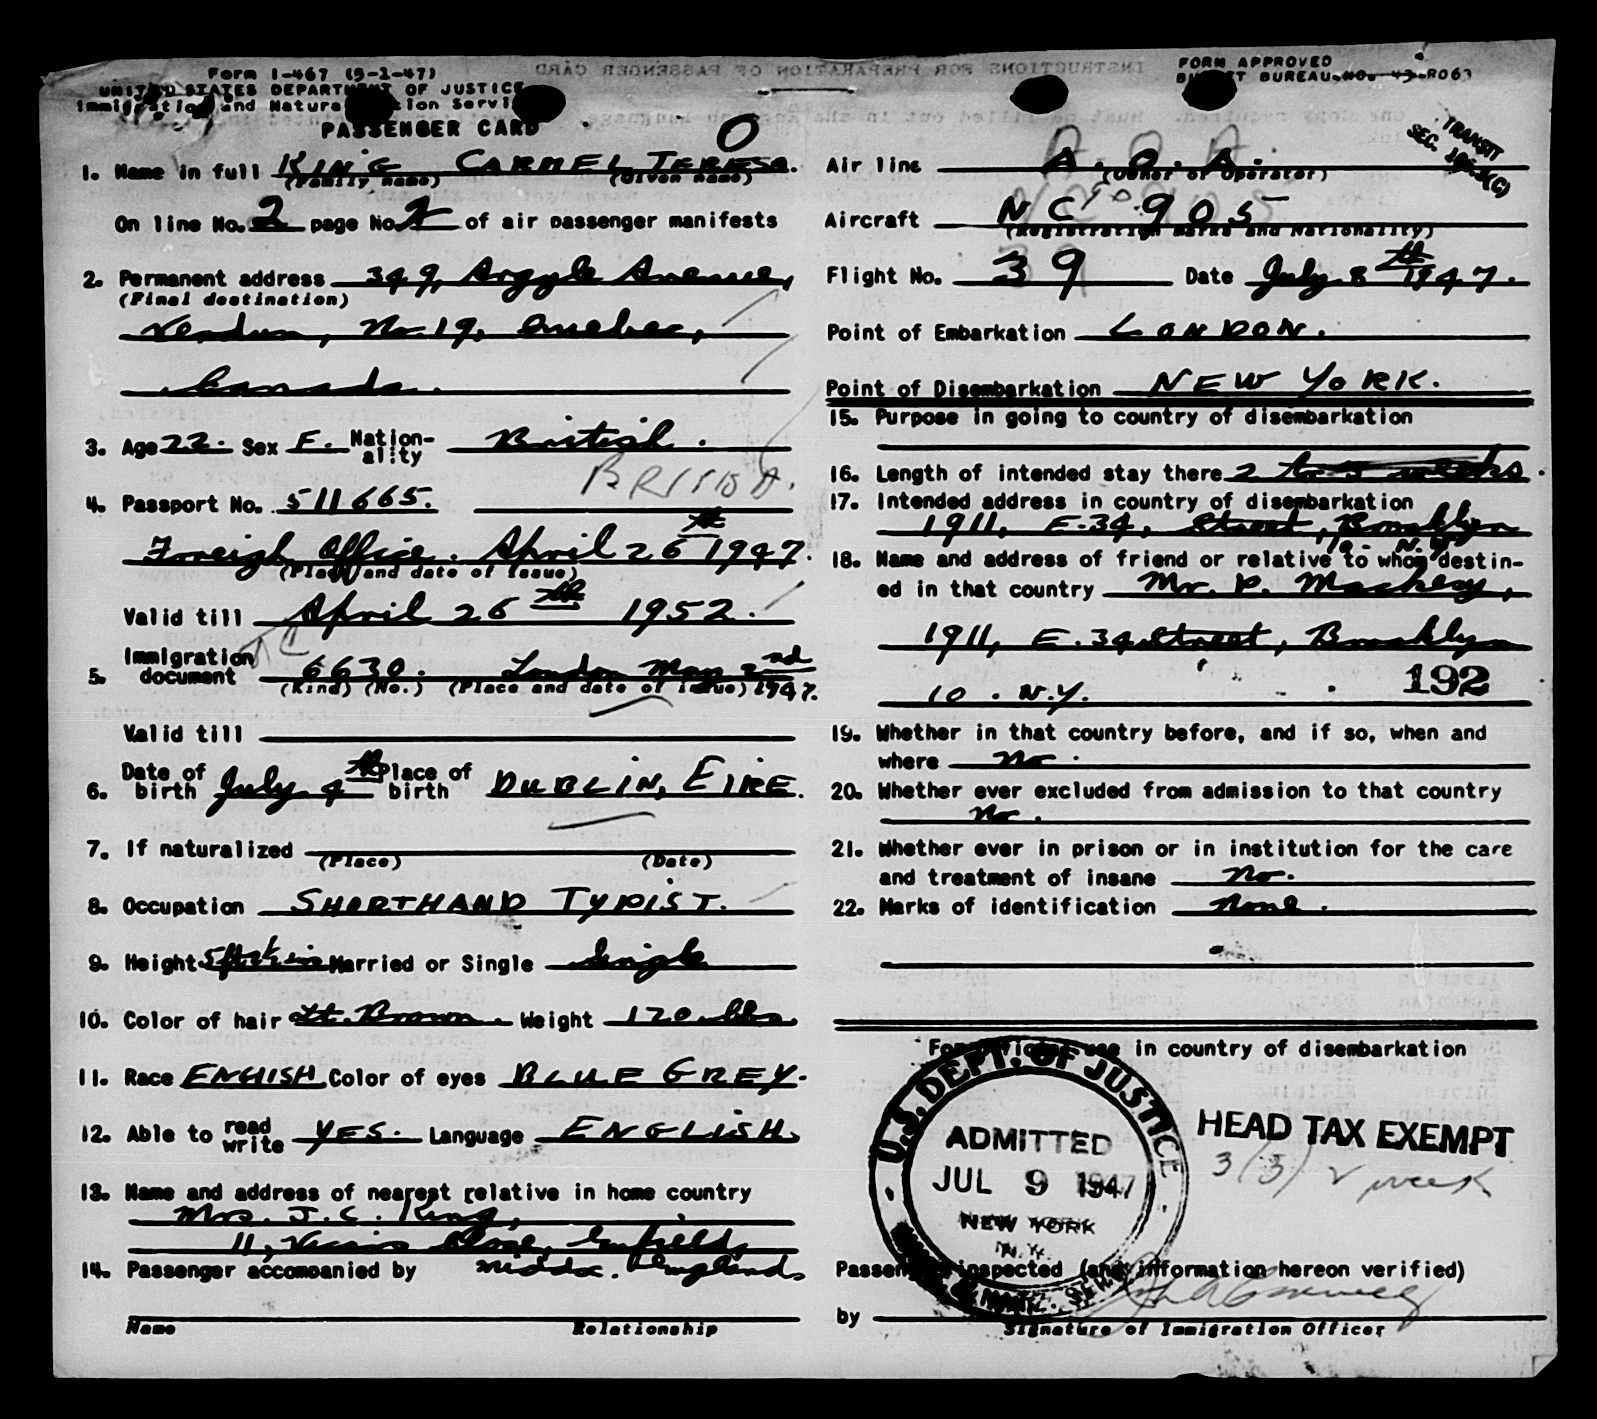 Form I-467 (5-1-47)
UNITED STATES DEPARTMENT OF JUSTICE
Immigration and Naturalization Service
PASSENGER CARD
O
1. Name in full KING CARMEL TERESA.
(Family name) (Given name)
On line No. 2 page No. of air passenger manifests
2. Permanent address 349, Argyle Avenue,
(Final destination)
Verdun, No. 19, Quebec,
Canada.
3. Age 22. Sex F. Nation-ality British.
BRITISH.
4. Passport No. 511665.
Foreign Office. April 26th 1947.
(Place and date of issue)
Valid till April 26th 1952.
5. Immigration document 6630. London May 2nd 1947.
(Kind) (No.) (Place and date of issue)
Valid till
6. Date of birth July 4th Place of birth DUBLIN, EIRE.
7. If naturalized
(Place) (Date)
8. Occupation SHORTHAND TYPIST.
9. Height Married or Single Single
10. Color of hair Lt. Brown. Weight 120 lbs.
11. Race ENGLISH Color of eyes BLUE GREY.
12. Able to read write YES. Language ENGLISH.
13. Name and address of nearest relative in home country
Mrs. J. C. King,
11, Close, Enfield,
Middx. England
14. Passenger accompanied by
Name Relationship
FORM APPROVED
BUDGET BUREAU NO. 43-R063
TRANSIT
SEC.
Air line A. O. A.
(Owner or Operator)
Aircraft NC 905
(Registration marks and Nationality)
Flight No. 39 Date July 8th 1947.
Point of Embarkation LONDON.
Point of Disembarkation NEW YORK.
15. Purpose in going to country of disembarkation
16. Length of intended stay there 2 to 3 weeks.
17. Intended address in country of disembarkation
1911, E. 34, Street, Brooklyn
10. N.Y.
18. Name and address of friend or relative to whom destin-
ed in that country Mr. P. Mackesy,
1911, E. 34 Street, Brooklyn
10. N.Y.
192
19. Whether in that country before, and if so, when and
where No.
20. Whether ever excluded from admission to that country
No.
21. Whether ever in prison or in institution for the care
and treatment of insane No.
22. Marks of identification None.
For official use in country of disembarkation
U.S. DEPT. OF JUSTICE
ADMITTED
JUL 9 1947
NEW YORK
N.Y.
HEAD TAX EXEMPT
3(3) 2 week
Passenger inspected (and information hereon verified)
by
Signature of Immigration Officer